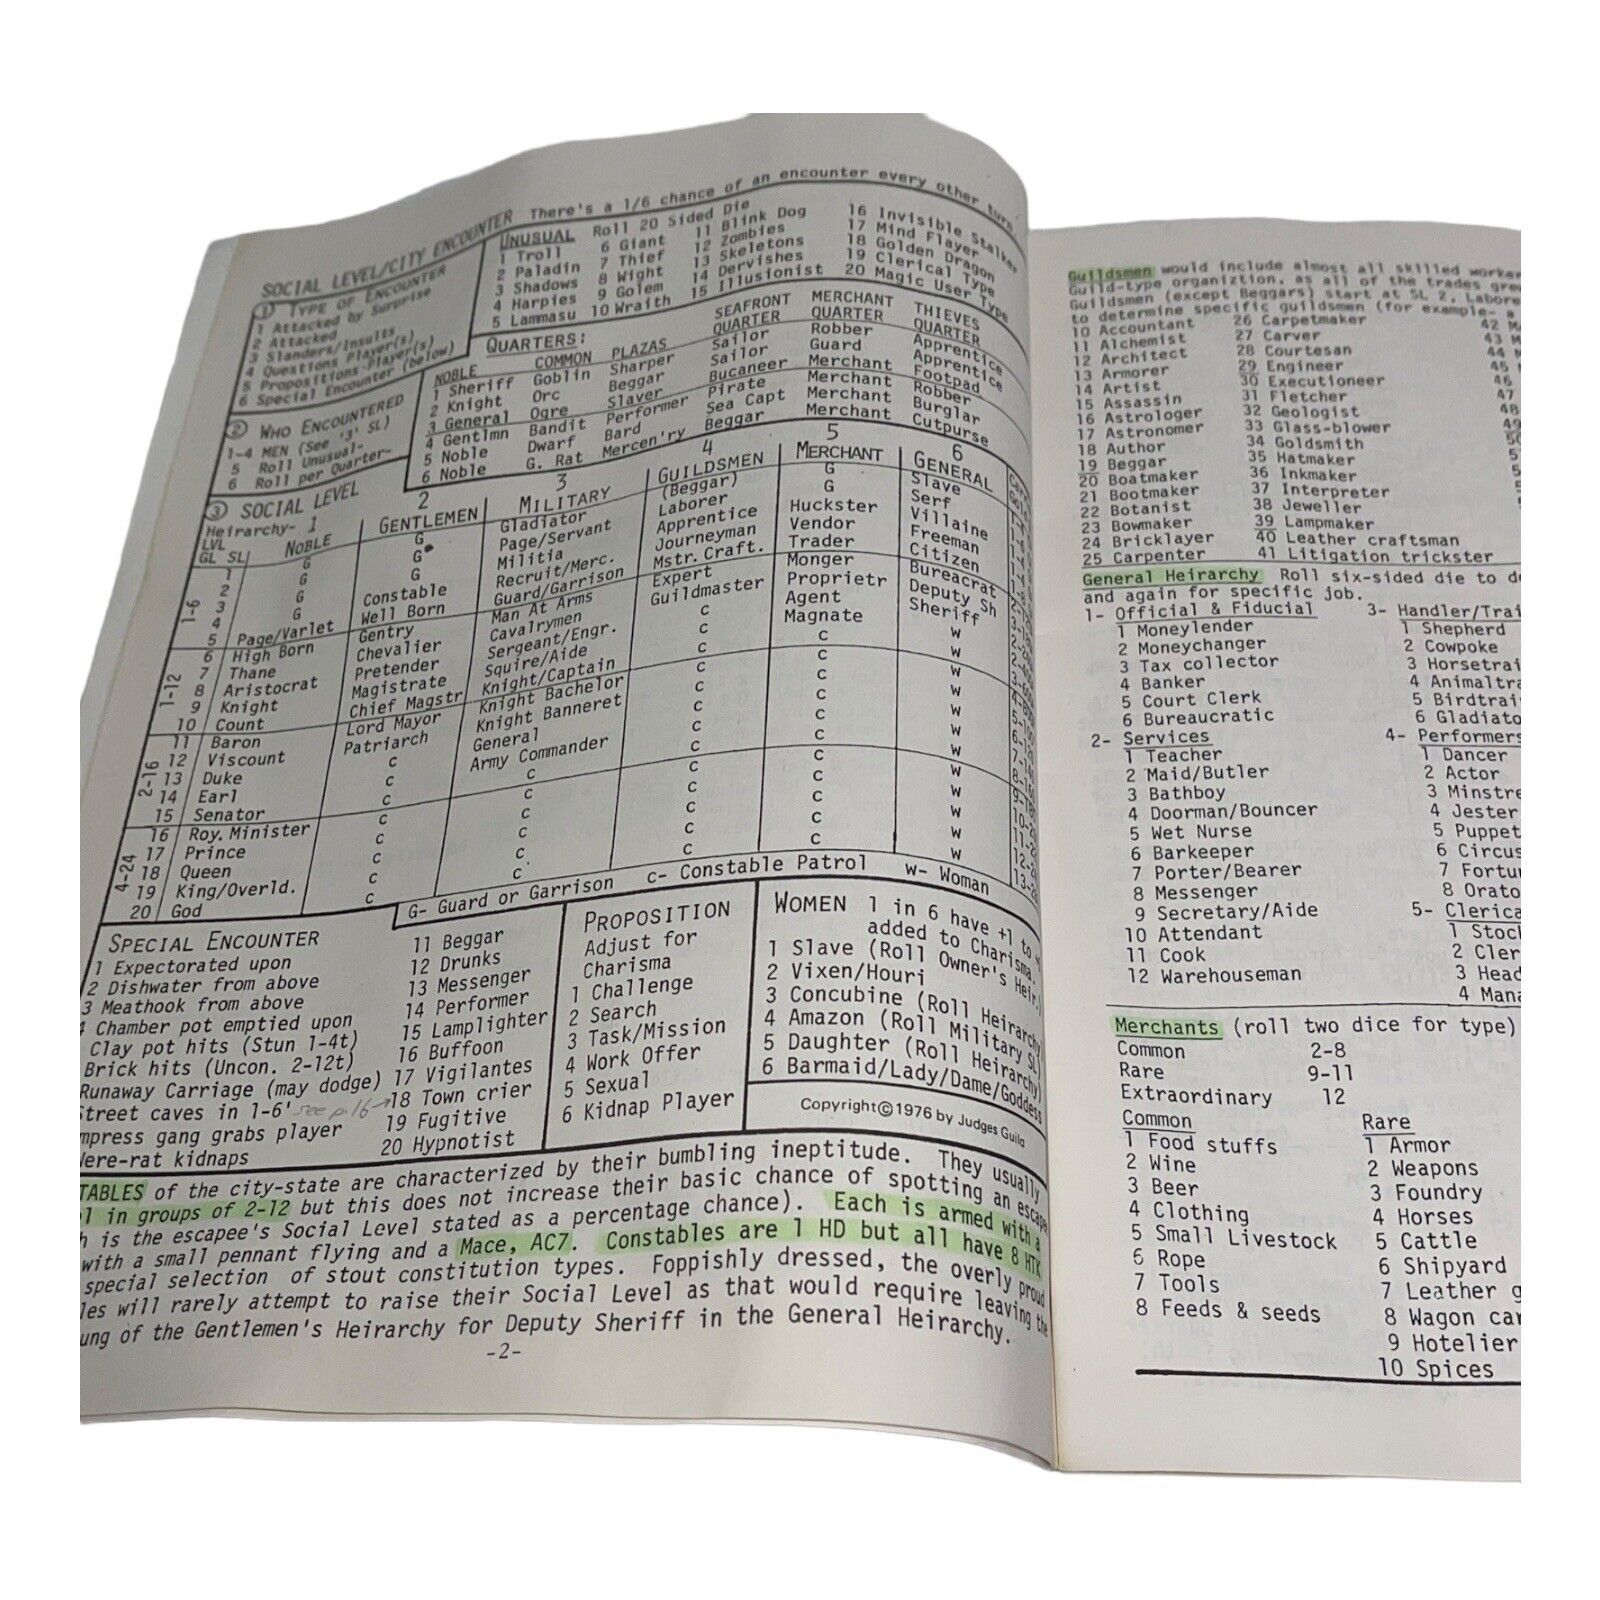 SOCIAL LEVEL/CITY ENCOUNTER There's a 1/6 chance of an encounter every other turn
① TYPE OF ENCOUNTER
1 Attacked by Surprise
2 Attacked
3 Slanders/Insults
4 Questions Player(s)
5 Propositions Player(s)
6 Special Encounter (below)
UNUSUAL Roll 20 Sided Die
1 Troll 6 Giant 11 Blink Dog 16 Invisible Stalker
2 Paladin 7 Thief 12 Zombies 17 Mind Flayer
3 Shadows 8 Wight 13 Skeletons 18 Golden Dragon
4 Harpies 9 Golem 14 Dervishes 19 Clerical Type
5 Lammasu 10 Wraith 15 Illusionist 20 Magic User Type
② WHO ENCOUNTERED
1-4 MEN (See '3' SL)
5 Roll Unusual-
6 Roll per Quarter-
QUARTERS: SEAFRONT MERCHANT THIEVES
NOBLE COMMON PLAZAS QUARTER QUARTER QUARTER
1 Sheriff Goblin Sharper Sailor Robber Apprentice
2 Knight Orc Beggar Sailor Guard Apprentice
3 General Ogre Slaver Bucaneer Merchant Footpad
4 Gentlmn Bandit Performer Pirate Merchant Robber
5 Noble Dwarf Bard Sea Capt Merchant Burglar
6 Noble G. Rat Mercen'ry Beggar Merchant Cutpurse
③ SOCIAL LEVEL
Heirarchy- 1 2 3 4 5 6
LVL
GL SL NOBLE GENTLEMEN MILITARY GUILDSMEN MERCHANT GENERAL
1-6 1 G G Gladiator (Beggar) G Slave
2 G G Page/Servant Laborer G Serf
3 G G Militia Apprentice Huckster Villaine
4 G Constable Recruit/Merc. Journeyman Vendor Freeman
5 Page/Varlet Well Born Guard/Garrison Mstr. Craft. Trader Citizen
1-12 6 High Born Gentry Man At Arms Expert Monger Bureacrat
7 Thane Chevalier Cavalrymen Guildmaster Proprietr Deputy Sh
8 Aristocrat Pretender Sergeant/Engr. c Agent Sheriff
9 Knight Magistrate Squire/Aide c Magnate w
10 Count Chief Magstr Knight/Captain c c w
2-16 11 Baron Lord Mayor Knight Bachelor c c w
12 Viscount Patriarch Knight Banneret c c w
13 Duke c General c c w
14 Earl c Army Commander c c w
15 Senator c c c c w
4-24 16 Roy. Minister c c c c w
17 Prince c c c c w
18 Queen c c c c w
19 King/Overld. c c c c w
20 God c c c c w
G- Guard or Garrison c- Constable Patrol w- Woman
SPECIAL ENCOUNTER
1 Expectorated upon
2 Dishwater from above
3 Meathook from above
4 Chamber pot emptied upon
Clay pot hits (Stun 1-4t)
Brick hits (Uncon. 2-12t)
Runaway Carriage (may dodge)
Street caves in 1-6' see p.16→
mpress gang grabs player
Were-rat kidnaps
11 Beggar
12 Drunks
13 Messenger
14 Performer
15 Lamplighter
16 Buffoon
17 Vigilantes
18 Town crier
19 Fugitive
20 Hypnotist
PROPOSITION
Adjust for
Charisma
1 Challenge
2 Search
3 Task/Mission
4 Work Offer
5 Sexual
6 Kidnap Player
WOMEN 1 in 6 have +1 to
added to Charisma.
1 Slave (Roll Owner's Heir.)
2 Vixen/Houri
3 Concubine (Roll Heirarchy)
4 Amazon (Roll Military SL)
5 Daughter (Roll Heirarchy)
6 Barmaid/Lady/Dame/Goddess
Copyright © 1976 by Judges Guild
TABLES of the city-state are characterized by their bumbling ineptitude. They usually
l in groups of 2-12 but this does not increase their basic chance of spotting an escape
h is the escapee's Social Level stated as a percentage chance). Each is armed with a
with a small pennant flying and a Mace, AC7. Constables are 1 HD but all have 8 HTK
special selection of stout constitution types. Foppishly dressed, the overly proud
les will rarely attempt to raise their Social Level as that would require leaving the
ung of the Gentlemen's Heirarchy for Deputy Sheriff in the General Heirarchy.
-2-
Guildsmen would include almost all skilled worker
Guild-type organiztion, as all of the trades gre
Guildsmen (except Beggars) start at SL 2, Labore
to determine specific guildsmen (for example- a
10 Accountant 26 Carpetmaker 42
11 Alchemist 27 Carver 43
12 Architect 28 Courtesan 44
13 Armorer 29 Engineer 45
14 Artist 30 Executioneer 46
15 Assassin 31 Fletcher 47
16 Astrologer 32 Geologist 48
17 Astronomer 33 Glass-blower 49
18 Author 34 Goldsmith 50
19 Beggar 35 Hatmaker
20 Boatmaker 36 Inkmaker
21 Bootmaker 37 Interpreter
22 Botanist 38 Jeweller
23 Bowmaker 39 Lampmaker
24 Bricklayer 40 Leather craftsman
25 Carpenter 41 Litigation trickster
General Heirarchy Roll six-sided die to d
and again for specific job.
1- Official & Fiducial
1 Moneylender
2 Moneychanger
3 Tax collector
4 Banker
5 Court Clerk
6 Bureaucratic
2- Services
1 Teacher
2 Maid/Butler
3 Bathboy
4 Doorman/Bouncer
5 Wet Nurse
6 Barkeeper
7 Porter/Bearer
8 Messenger
9 Secretary/Aide
10 Attendant
11 Cook
12 Warehouseman
3- Handler/Trai
1 Shepherd
2 Cowpoke
3 Horsetrai
4 Animaltra
5 Birdtrai
6 Gladiato
4- Performers
1 Dancer
2 Actor
3 Minstre
4 Jester
5 Puppet
6 Circus
7 Fortu
8 Orato
5- Clerica
1 Stock
2 Cler
3 Head
4 Mana
Merchants (roll two dice for type)
Common 2-8
Rare 9-11
Extraordinary 12
Common
1 Food stuffs
2 Wine
3 Beer
4 Clothing
5 Small Livestock
6 Rope
7 Tools
8 Feeds & seeds
Rare
1 Armor
2 Weapons
3 Foundry
4 Horses
5 Cattle
6 Shipyard
7 Leather g
8 Wagon car
9 Hotelier
10 Spices